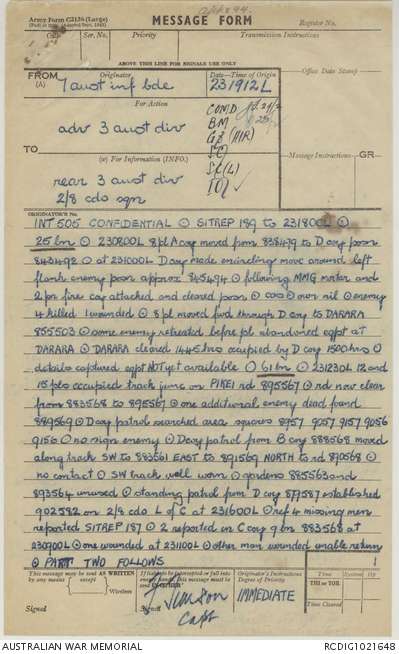 Army Form C2136 (Large)
MESSAGE FORM
Register No.
Call
Ser. No.
Priority
Transmission Instructions
ABOVE THIS LINE FOR SIGNALS USE ONLY
FROM (A)
Originator
Date—Time of Origin
Office Date Stamp
7 aust inf bde
231912L
For Action
COMD
BM
adv 3 aust div
TO
(W) For Information (INFO.)
Message Instructions
GR
rear 3 aust div
2/8 cdo sqn
ORIGINATOR'S No.
INT 505 CONFIDENTIAL ⊙ SITREP 189 to 231800L ⊙
25 bn ⊙ 230800L 8 pl A coy moved from 838479 to D coy posn
843492 ⊙ at 231000L D coy made encircling move around left
flank enemy posn approx 845494 ⊙ following MMG mortar and
2 pr fire coy attached and cleared posn ⊙ own nil ⊙ enemy
4 killed 1 wounded ⊙ 8 pl moved fwd through D coy to DARARA
855503 ⊙ some enemy retreated before pl abandoned eqpt at
DARARA ⊙ DARARA cleared 1445 hrs occupied by D coy 1500 hrs ⊙
details captured eqpt NOT yet available ⊙ 61 bn ⊙ 231230L 12 and
15 pls occupied track junc on PIREI rd 895567 ⊙ rd now clear
from 883568 to 895567 ⊙ one additional enemy dead found
889569 ⊙ D coy patrol searched area squares 8957 9057 9157 9056
9156 ⊙ no sign enemy ⊙ D coy patrol from B coy 888568 moved
along track SW to 883561 EAST to 891569 NORTH to rd 890568 ⊙
no contact ⊙ SW track well worn ⊙ gardens 885563 and
893564 unused ⊙ standing patrol from D coy 879587 established
902582 on 2/8 cdo L of C at 231600L ⊙ ref 4 missing men
reported SITREP 187 ⊙ 2 reported in C coy 9 bn 883568 at
230900L ⊙ one wounded at 231100L ⊙ other man wounded unable return
⊙ PART TWO FOLLOWS
This message may be sent AS WRITTEN by any means except
If liable to be intercepted or fall into enemy hands, this message must be sent IN CIPHER
Originator's Instructions
Degree of Priority
IMMEDIATE
Time
System
Op
THI or TOR
Time Cleared
Signed
Signed
Capt
AUSTRALIAN WAR MEMORIAL
RCDIG1021648